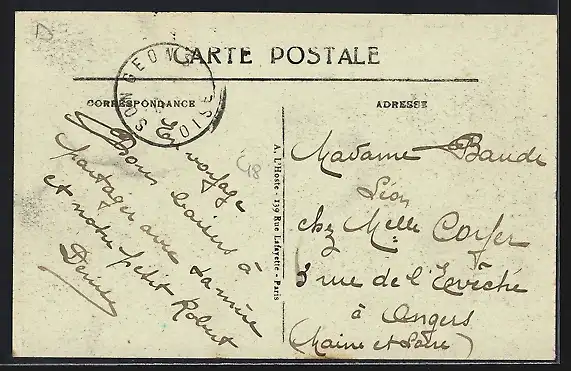 D
CARTE POSTALE
SONGEONS
OISE
CORRESPONDANCE
ADRESSE
En voyage
Bons baisers à
partager avec ta mère
et notre petit Robert
Denise
48
A. L'Hoste - 139 Rue Lafayette - Paris
Madame Baude
Léon
chz Melle
3 rue de l'Evêché
à Angers
(Maine et Loire)